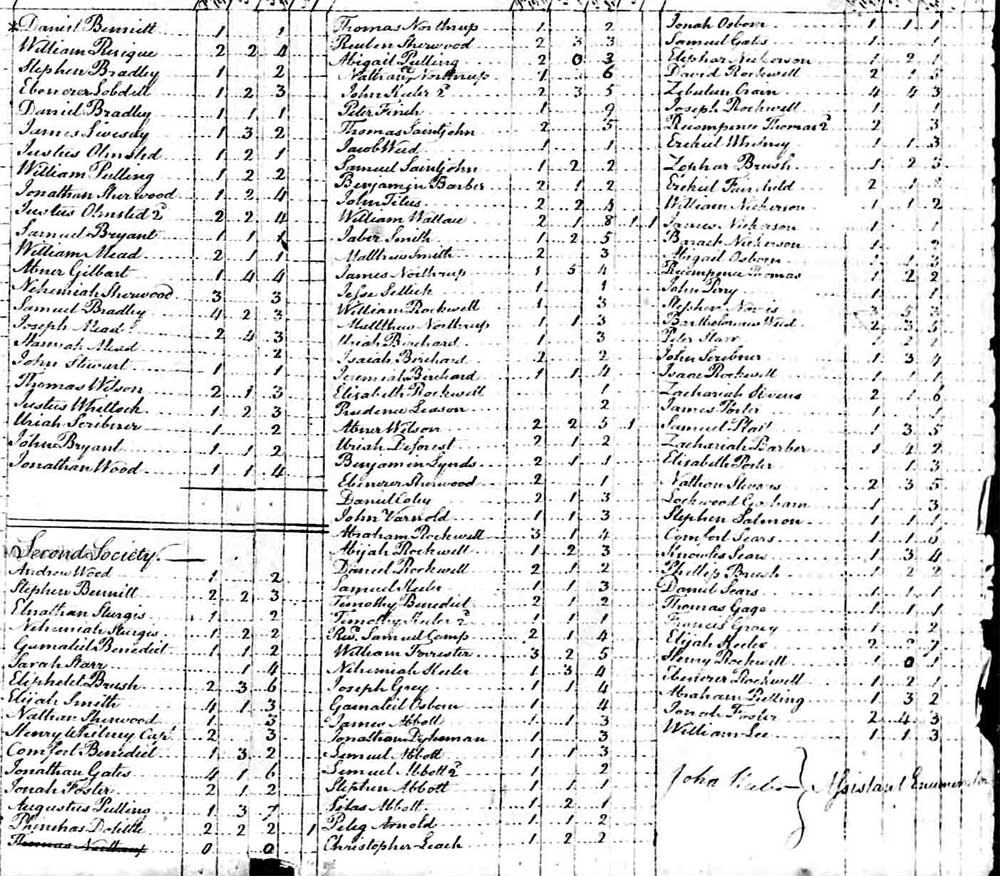 Daniel Bennitt 1 1
William Perique 2 2 4
Stephen Bradley 1 2
Ebenezer Lobdill 1 2 3
Daniel Bradley 1 1 1
James Livesay 1 3 2
Justus Olmsted 1 2 1
William Pulling 1 2 2
Jonathan Sherwood 1 2 4
Justus Olmsted 2 2 2 4
Samuel Bryant 1 1
William Mead 2 1 1
Abner Gilbart 1 4 4
Nehemiah Sherwood 3 3
Samuel Bradley 4 2 3
Joseph Mead 2 4 3
Hannah Mead 2
John Stewart 1 1
Thomas Wilson 2 1 3
Justus Whitlock 1 2 3
Uriah Scribner 1 2
John Bryant 1 1 2
Jonathan Wood 1 1 4
Second Society
Andrew Wood 1 2
Stephen Bennitt 2 2 3
Elnathan Sturgis 1 2
Nehemiah Sturgis 1 2 2
Gamaliel Benedict 1 1 2
Sarah Starr 1 4
Eliphelet Brush 2 3 6
Elijah Smith 4 1 3
Nathan Sherwood 1 3
Henry Whitney Cap 2 3
Comfort Benedict 1 3 2
Jonathan Gates 4 1 6
Jonah Foster 2 1 2
Augustus Pulling 1 3 7
Phinehas Dolittle 2 2 2 1
Thomas 0 0
Thomas Northrup 1 2
Reuben Sherwood 2 3 3
Abigail Pulling 2 0 3
Nathan Northrup 1 6
John Keeler 2 2 3 5
Peter Finch 1 9
Thomas Saintjohn 2 5
Jacob Weed 1 1
Samuel Saintjohn 1 2 2
Benjamin Barber 2 1 2
John Titus 2 2 4
William Wallace 2 1 8 1 1
Jaber Smith 1 2 5
Matthew Smith 2 3
James Northrup 1 5 4
Jesse Sellick 1 1
William Rockwell 1 3
Matthew Northrup 1 1 3
Uriah Birchard 1 3
Isaiah Birchard 2 2
Jeremiah Birchard 1 1 4
Elizabeth Rockwell 1
Prudence Leason 2
Abner Wilson 2 2 5 1
Uriah Deforest 2 1 2
Benjamin Lynds 2 1 1
Ebenezer Sherwood 2 1
Daniel Coley 2 1 3
John Varnold 1 1 3
Abraham Rockwell 3 1 4
Abijah Rockwell 1 2 3
Daniel Rockwell 2 1 2
Samuel Keeler 1 1 3
Timothy Benedict 2 1 2
Timothy Keeler 2 1 1 1
Rev. Samuel Camp 2 1 4
William Forrester 3 2 5
Nehemiah Keeler 1 3 4
Joseph Grey 1 1 4
Gamaleil Osborn 1 4
James Abbott 1 1 3
Jonathan Dykeman 1 3
Lemuel Abbott 1 1 3
Lemuel Abbott 2 1 2
Stephen Abbott 1 1 1
Silas Abbott 1 2 1
Peleg Arnold 1 1 2
Christopher Leach 1 2 2
Jonah Osborn 1 1 1
Samuel Gates 1 1
Eliphas Nickerson 1 2 1
David Rockwell 2 1 3
Zebulun Crain 4 4 3
Joseph Rockwell 1 1
Recompence Thomas 2 2 3
Ezekiel Whitney 1 1 3
Zophar Brush 1 2 3
Ezekiel Fairchild 2 1
William Nickerson 1 1 2
James Nickerson 1 1
Barach Nickerson 1 2
Abigail Osborn 1 3
Recompence Thomas 1 2 2
John 1 1
Stephen Norris 3 5 3
Bartholomew Weed 2 3 5
Peter Starr
John Scribner 1 3 4
Isaac Rockwell 1 1 1
Zachariah Stevens 2 1 6
James Foster 1 1
Samuel 1 3 5
Zachariah Barber 1 4 2
Elisabeth Foster 1 3
Nathan Stevens 2 3 5
Lockwood Gorham 1 3
Stephen Salmon 1 1 1
Comfort Sears 1 1
Knowles Sears 1 3 4
Phillip Brush 1 2 2
Daniel Sears 1 1 1
Thomas Gage 1 1 1
Francis 1 2
Elijah Keeler 2
Henry Rockwell 1 0 1
Abenezer Rockwell 1 2 1
Abraham Pulling 1 3 2
Jonah Foster 2 4 3
William Lee 1 1 3
John Keeler } Assistant Enumerator